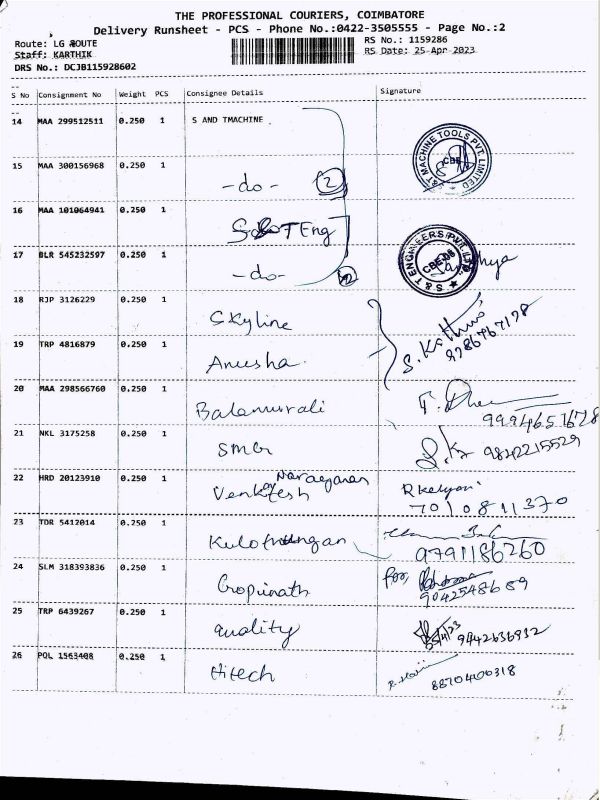 THE PROFESSIONAL COURIERS, COIMBATORE
Delivery Runsheet - PCS - Phone No.:0422-3505555 - Page No.:2
Route: LG ROUTE RS No.: 1159286
Staff: KARTHIK RS Date: 25-Apr-2023
DRS No.: DCJB115928602
S No Consignment No Weight PCS Consignee Details Signature
14 MAA 299512511 0.250 1 S AND TMACHINE
S&T MACHINE TOOLS PVT. LIMITED CBE
15 MAA 300156968 0.250 1 -do- 2
16 MAA 101064941 0.250 1 S&T Eng
S & T ENGINEERS PVT. LTD. CBE-08
17 BLR 545232597 0.250 1 -do- 2
18 RJP 3126229 0.250 1 Skyline
19 TRP 4816879 0.250 1 Anusha
20 MAA 298566760 0.250 1 Balamurali
21 NKL 3175258 0.250 1 SMGr 9842215529
22 HRD 20123910 0.250 1 Venkatesh Narayanan Rkalyani
7010811370
23 TDR 5412014 0.250 1 9791186260
24 SLM 318393836 0.250 1 Gopinath for,
9042548689
25 TRP 6439267 0.250 1 quality 9842636932
26 POL 1563408 0.250 1 Hitech 8870400318